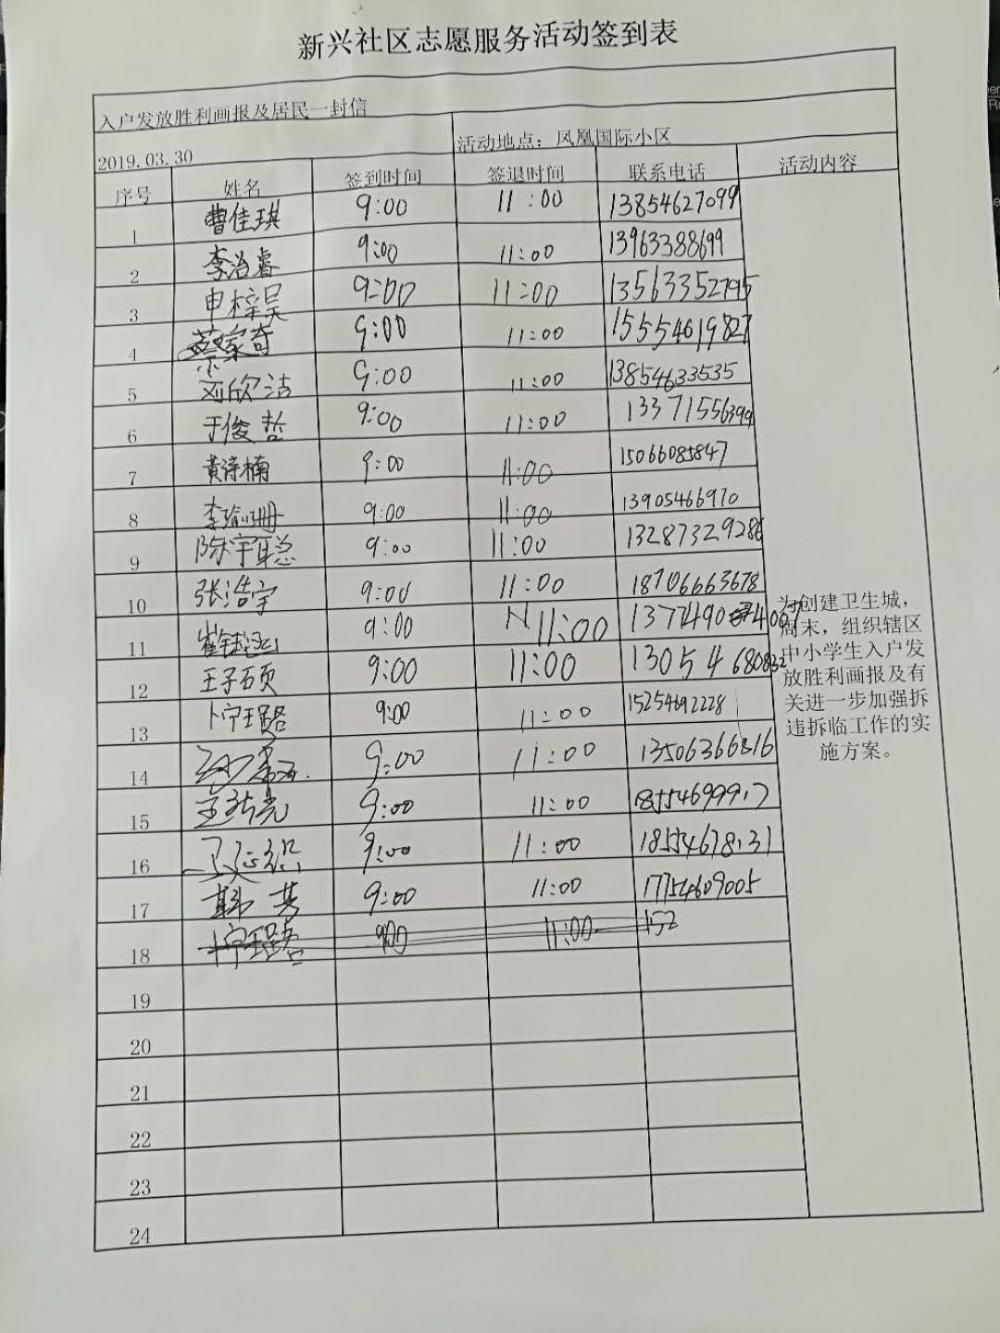 新兴社区志愿服务活动签到表
入户发放胜利画报及居民一封信
2019.03.30 活动地点：凤凰国际小区
序号 姓名 签到时间 签退时间 联系电话 活动内容
1 曹佳琪 9:00 11:00 13854627099
2 李治睿 9:00 11:00 13963388699
3 申梓昊 9:00 11:00 13563352795
4 蔡家奇 9:00 11:00 15554619827
5 邓欣洁 9:00 11:00 13854633535
6 于俊哲 9:00 11:00 13371556399
7 黄诗楠 9:00 11:00 15066085847
8 李瑜珊 9:00 11:00 13905466970
9 陈宇聪 9:00 11:00 13287329286
10 张浩宇 9:00 11:00 18706663678
11 9:00 11:00
12 王子硕 9:00 11:00 13054680832
13 卜宁璐 9:00 11:00 15254692228
14 9:00 11:00 13506366816
15 9:00 11:00
16 9:00 11:00 18554678131
17 韩芳 9:00 11:00 17754609005
18 卜宁璐 9:00 11:00 152
19
20
21
22
23
24
为创建卫生城，
周末，组织辖区
中小学生入户发
放胜利画报及有
关进一步加强拆
违拆临工作的实
施方案。